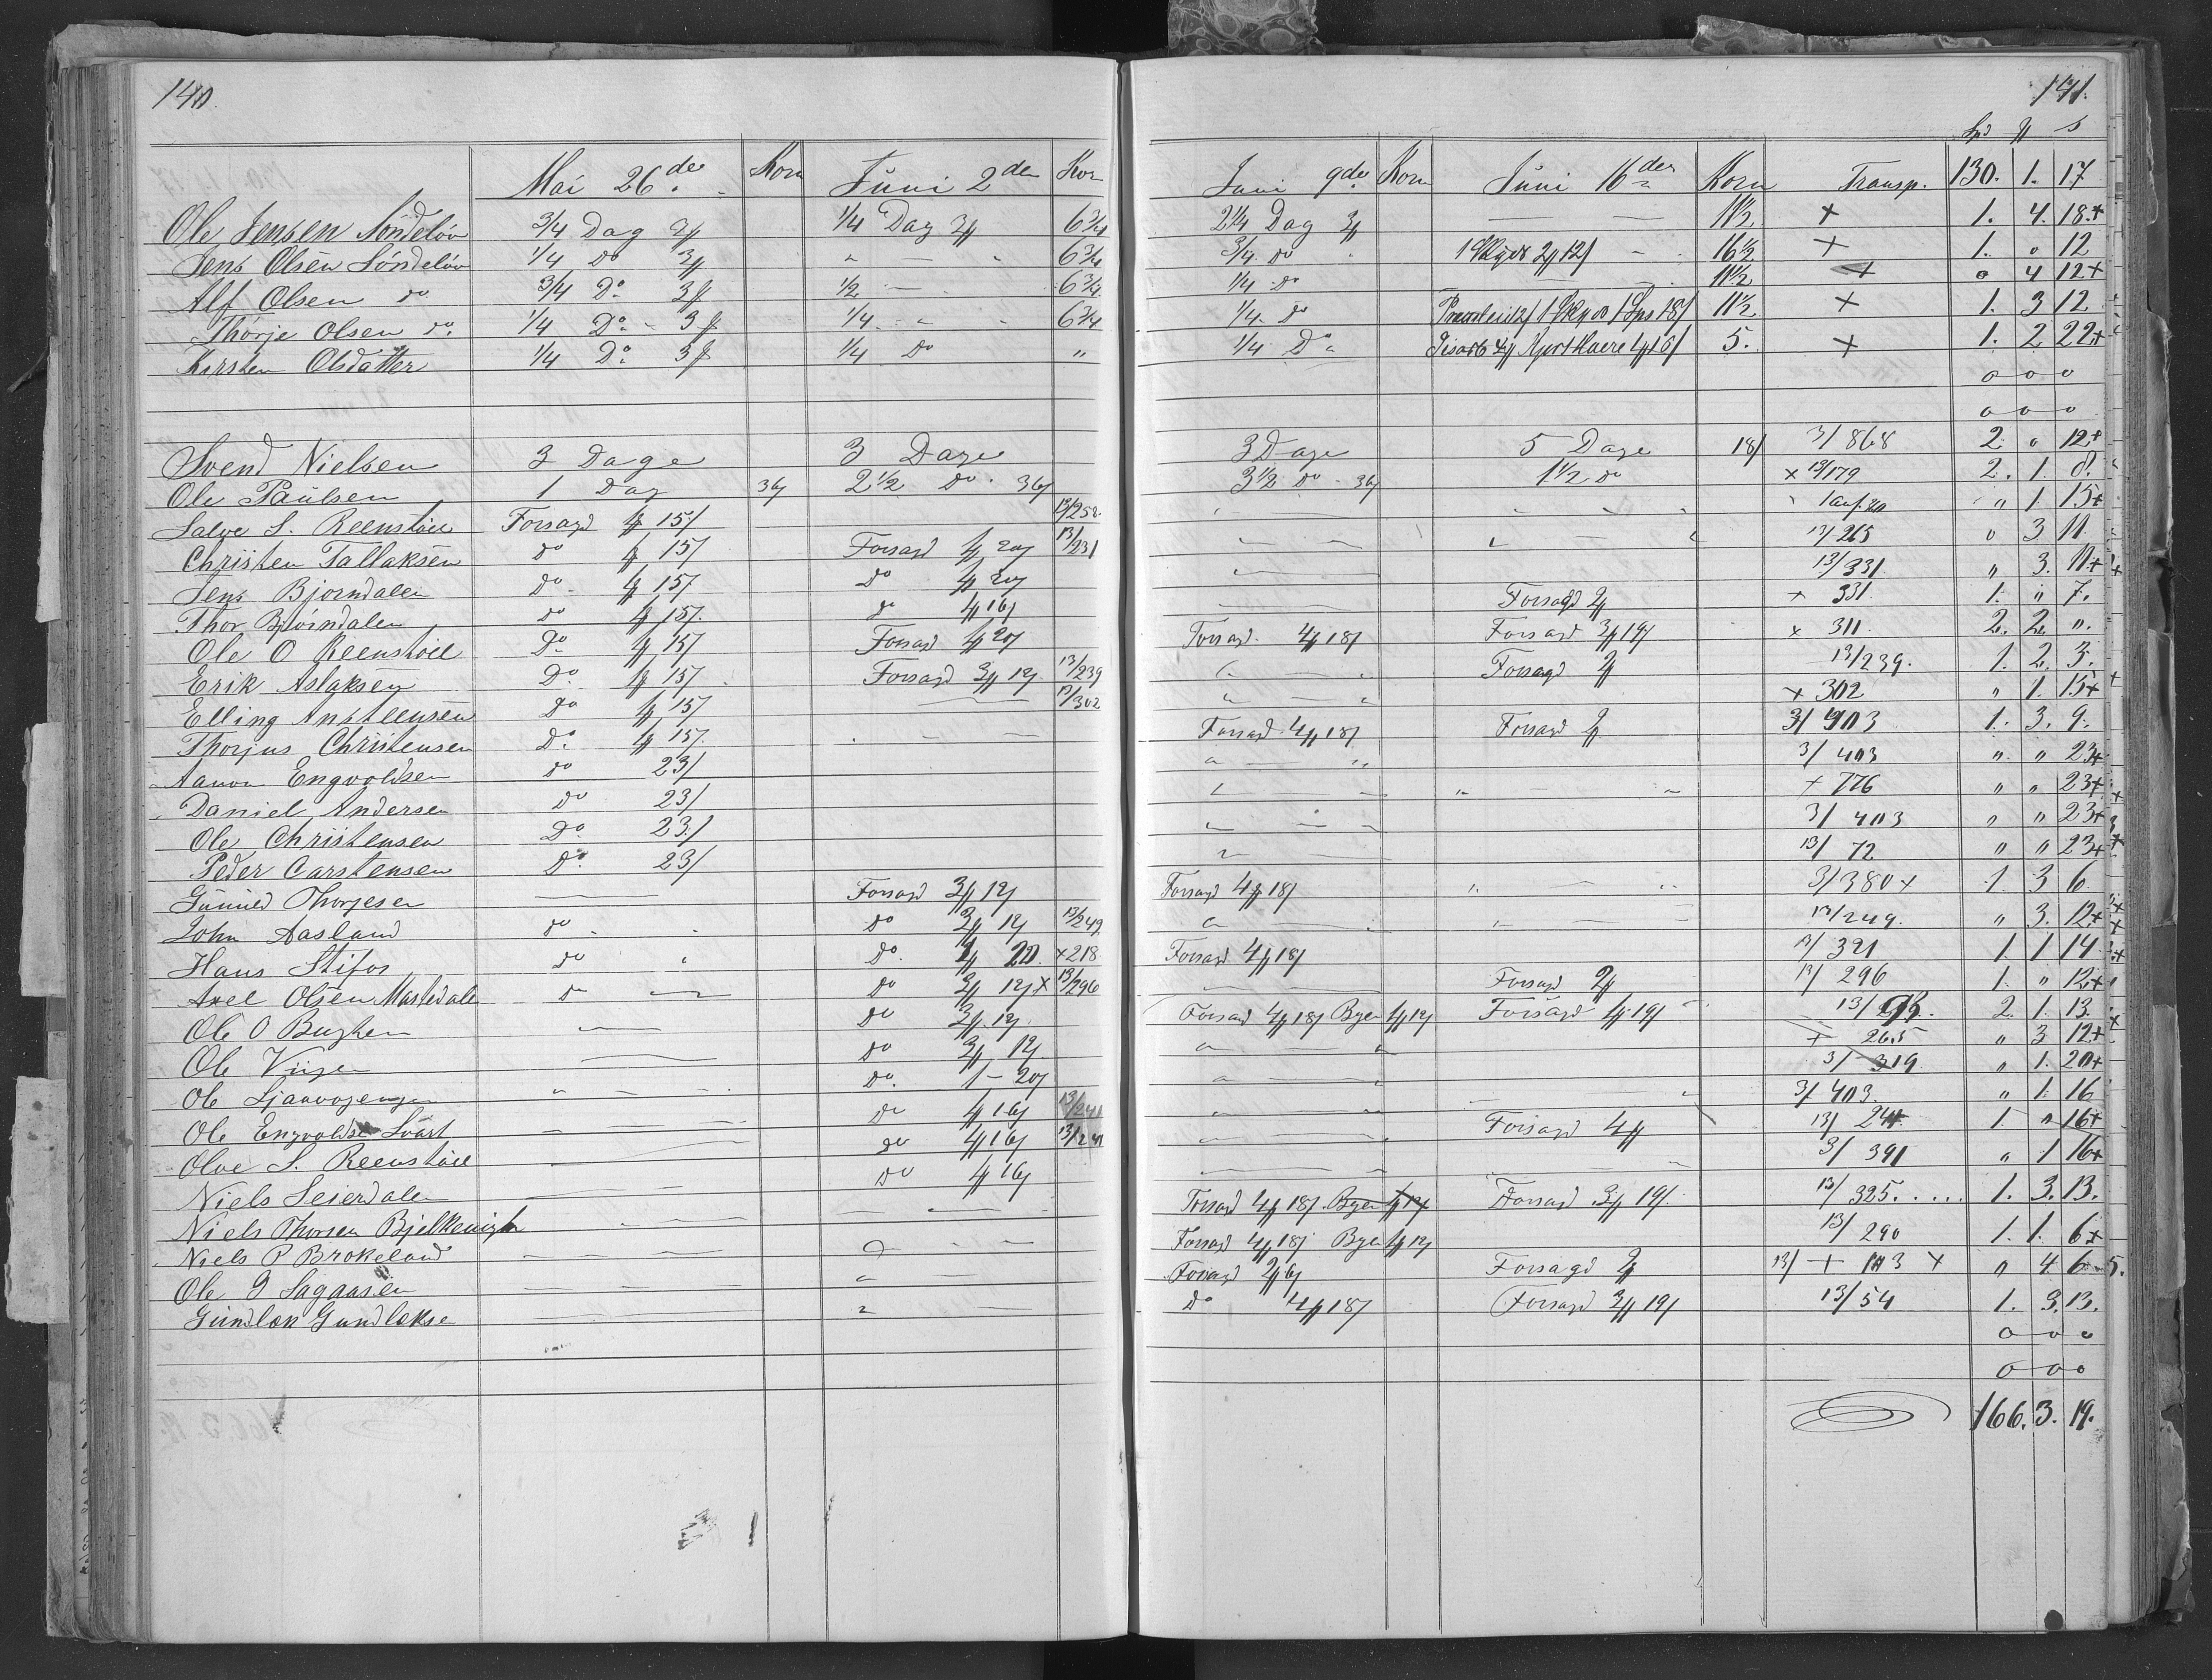 140.
Mai 26de Korn Juni 2den Korn
Ole Jensen Söndelöv 3/4 Dag 1/4 Dag 6 3/4
Jens Olsen Söndelöv 1/4 do " " 6 3/4
Alf Olsen do 3/4 Do 1/2 6 3/4
Thorje Olsen do. 1/4 Do 1/4 6 3/4
Kirsten Olsdatter 1/4 Do 1/4 Do "
Svend Nielsen 3 Dage 3 Dage
Ole Paulsen 1 Dag 36/ 2 1/2 Do 36/
Salve S. Reenstöll Forsagd 15/ 13/252
Christen Tallaksen do 15/ Forsagd 20/ 13/231
Jens Bjorndalen do 15/ do 20/
Thor Bjorndalen do 15/ do 16/
Ole O Reenstöll Do 15/ Forsagd 20/
Erik Aslaksen Do 15/ Forsagd 12/ 13/239
Elling Ansteensen Do 15/ 13/302
Thorjus Christensen Do 15/
Aanon Engvoldsen do 23/
Daniel Andersen do 23/
Ole Christensen Do 23/
Peder Carstensen Do 23/
Gunuld Thorjesen Forsagd 12/
John Aasland do do 12/ 13/249
Hans Stifos do Do 20 +218
Axel Olsen Mastedale do Do 12/ + 13/296
Ole O Bugten do 12/
Ole Viigen do 12/
Ole Ljaavogengn Do 1 - 20/
Ole Engvoldse Svart do 16/ 13/241
Olve S. Reenstöll do 16/ 13/241
Niels Seierdalen do 16/
Niels Thorsen Bjelkevigh
Niels P Brokeland
Ole G Sagaasen
Gundlæk Gundlækse
141.
Spd
Juni 9de Korn Juni 16den Korn Transp. 130. 1. 17
2 1/4 Dag 11 1/2 + 1. 4. 18.+
3/4 do 16 1/2 + 1. 0 12
1/4 do 11 1/2 + 0 4 12+
1/4 do 11 1/2 + 1. 3 12
1/4 Do 5. + 1. 2 22+
0 0 0
0 0 0
3 Dage 5 Dage 18/ 3/868 2. 0 12+
3 1/2 do 36/ 1 1/2 do + 13/179 2. 1. 8.
" 1 15+
13/265 0 3 11
13/331 " 3. 11+
Forsagd + 331. 1. " 7.
Forsagd. 18/ Forsagd 19/ + 311. 2. 2. ".
Forsagd 13/239. 1. 2. 3.
+ 302 " 1. 15+
Forsagd 18/ Forsagd 3/403 1. 3. 9.
3/403 " " 23+
+ 776 " " 23+
3/403 " " 23+
13/72 " " 23+
Forsagd 18/ 3/380 + 1 3 6
13/249. " 3. 12+
Forsagd 18/ 13/321 1. 1. 14
Forsagd 13/296 1. " 12+
Forsagd 18/ Byen 12/ Forsagd 19/ 2. 1. 13.
+ 265 " 3 12+
3/319 " 1. 20+
3/403 " 1. 16
Forsagd 13/241 1. " 16+
3/391 " 1 16+
Forsagd 18/ Byen 12/ Forsagd 19/ 13/325. . . . . 1. 3. 13.
Forsagd 18/ Byen 12/ 13/290 1. 1. 6+
Forsagd 6/ Forsagd 13/ + 103 + " 4. 6 5.
Do 18/ Forsagd 19/ 13/54 1. 3. 13.
0 0 0
0 0 0
166. 3. 19.